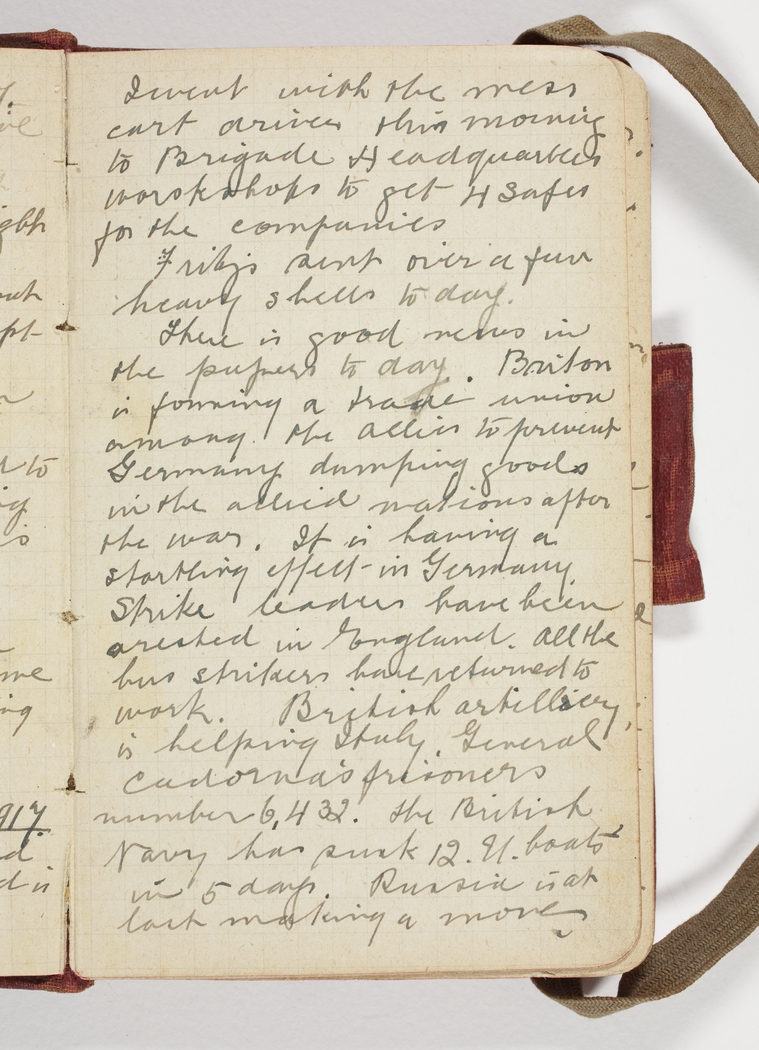 I went with the mess
cart driver this morning
to Brigade Headquarters
worskshops to get 4 safes
for the companies
Fritzs sent over a few
heavy shells to day.
There is good news in
the papers to day. Briton
is forming a trade union
among the allies to prevent
Germany dumping goods
in the allied nations after
the war. It is having a
startling effect in Germany
Strike leaders have been
arested in England. All the
bus strikers have returned to
work. British artilliery
is helping Italy. General
Cadorna's prisoners
number 6,432. The British
Navy has sunk 12. U. boats
in 5 days. Russia is at
last making a move
917.